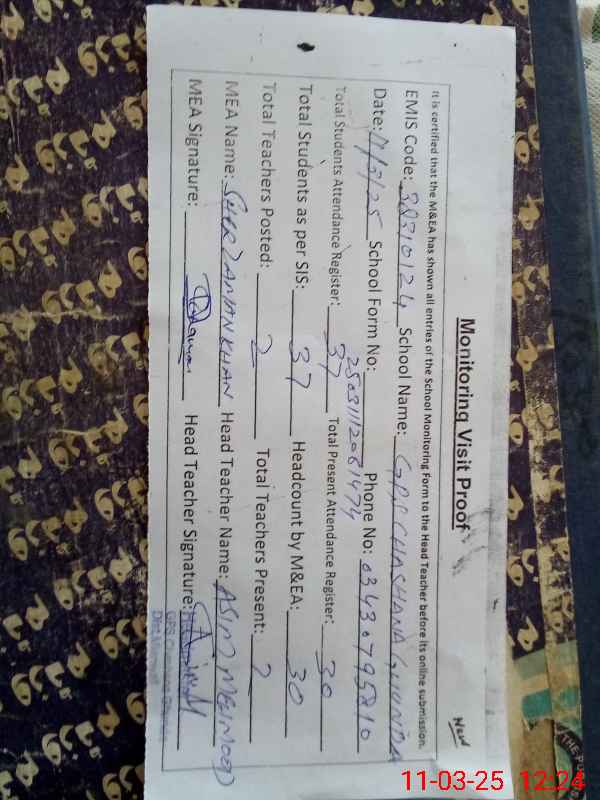 NEW
Monitoring Visit Proof
It is certified that the M&EA has shown all entries of the School Monitoring Form to the Head Teacher before its online submission.
EMIS Code: 38310124 School Name: GPS CHASHANA GHUNDA
Date: 11/3/25 School Form No: 25031112081474 Phone No: 03430795210
Total Students Attendance Register: 37 Total Present Attendance Register: 30
Total Students as per SIS: 37 Headcount by M&EA: 30
Total Teachers Posted: 2 Total Teachers Present: 2
MEA Name: SHERZAMAN KHAN Head Teacher Name: ASIM MEHMOOD
MEA Signature: Head Teacher Signature:
GPS
11-03-25 12:24